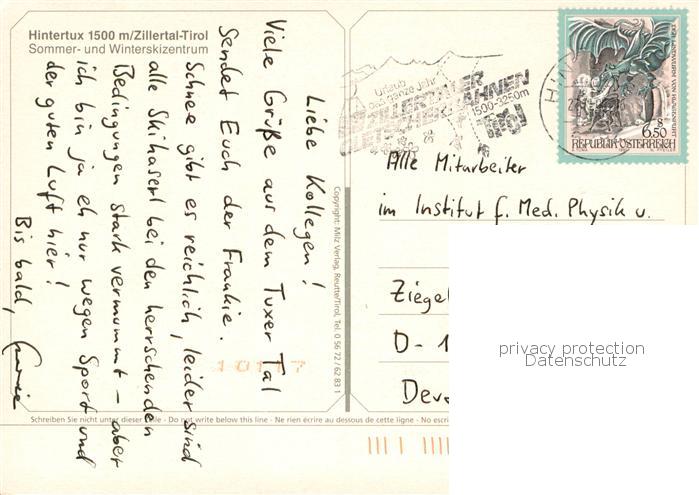 Hintertux 1500 m/Zillertal-Tirol
Sommer- und Winterskizentrum
Liebe Kollegen!
Viele Grüße aus dem Tuxer Tal
Sendet Euch der Frankie.
Schnee gibt es reichlich, leider sind
alle Skihaserl bei den herrschenden
Bedingungen stark vermummt - aber
ich bin ja eh nur wegen Sport und
der guten Luft hier!
Bis bald,
Copyright: Milz Verlag, Reutte/Tirol, Tel. 0 56 72 / 62 83 1
Urlaub
das ganze Jahr
ZILLERTALER
1500-3250m
6.50
REPUBLIK ÖSTERREICH
Alle Mitarbeiter
im Institut f. Med. Physik u.
Ziegel
D-1
privacy protection
Datenschutz
10117
Schreiben Sie nicht unter dieser Linie - Do not write below this line - Ne rien écrire au dessous de cette ligne - No escri